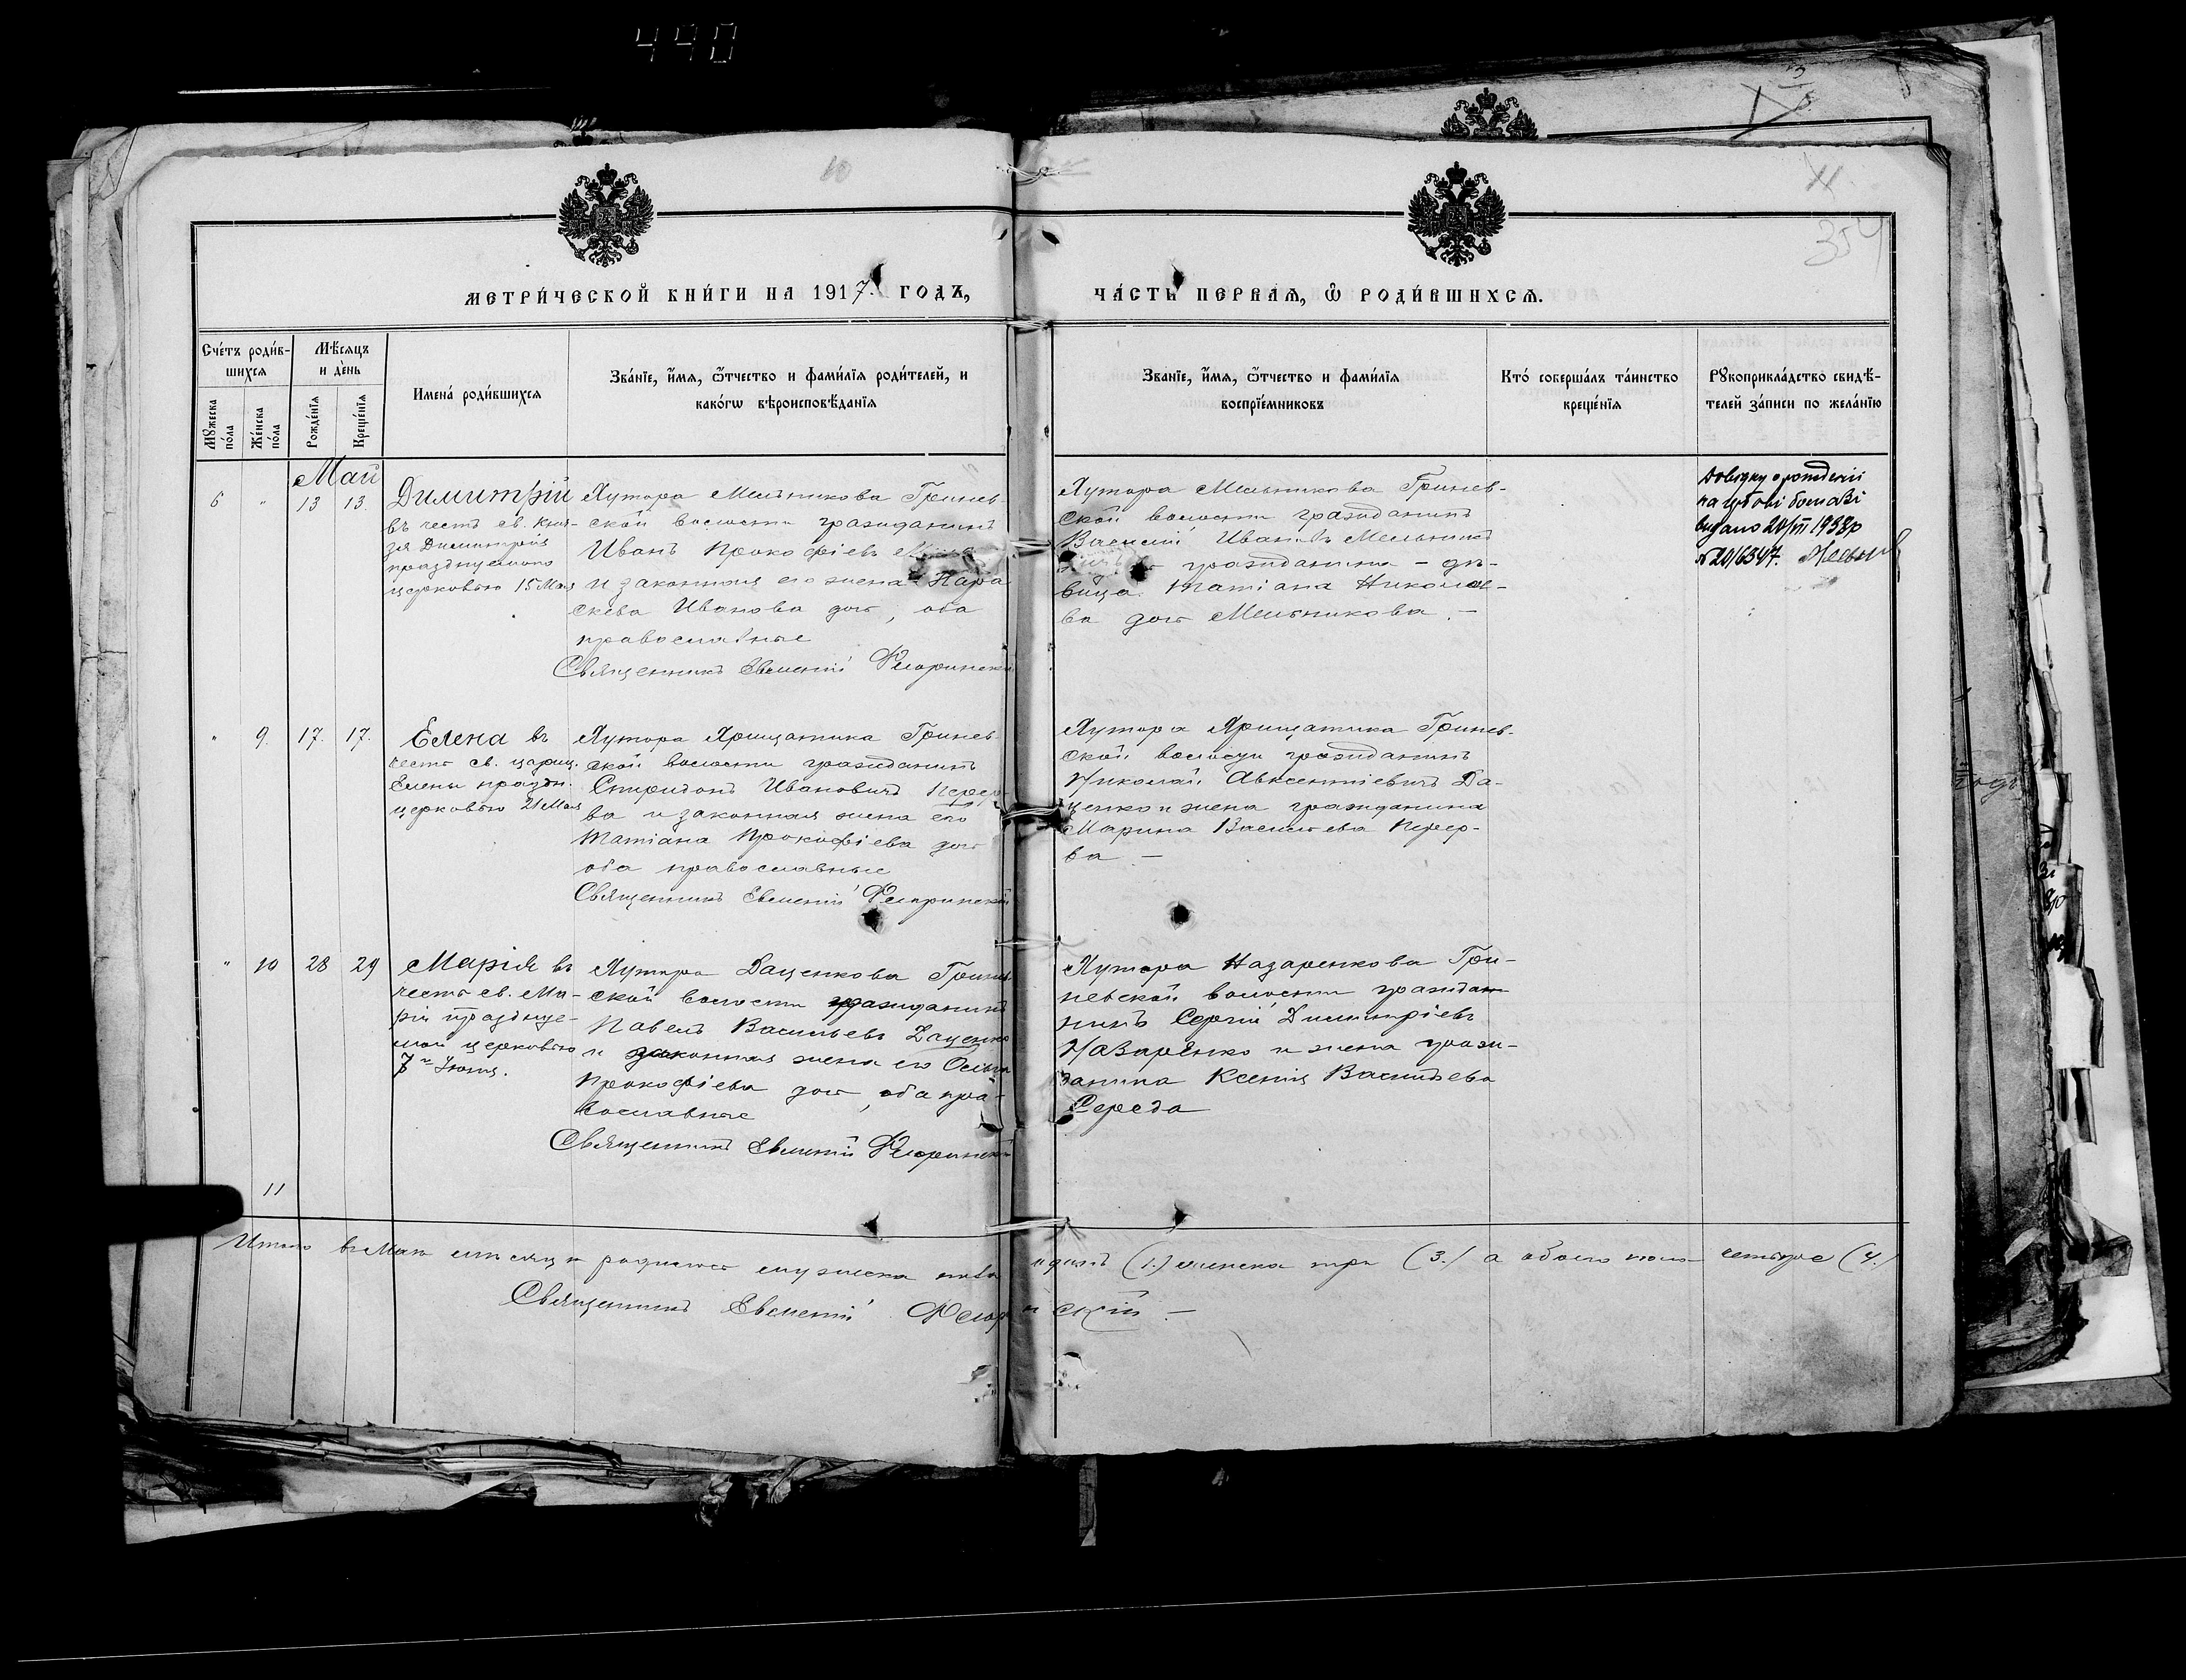 440
10
11.
354
МЕТРИ́ЧЕСКОЙ КНИ́ГИ НА 1917. ГОДЪ,
ЧА́СТЬ ПЕРВАЯ, Ѡ҆ РОДИ́ВШИХСЯ.
Сче́тъ роди́в-
шихся
Мѣ́сяцъ
и де́нь
Мꙋжеска
по́ла
Же́нска
по́ла
Рожде́нїя
Креще́нїя
Имена́ роди́вшихся
Зва́нїе, и҆́мя, ѻ҆́тчество и фами́лїя роди́телей, и
како́гѡ вѣроисповѣ́данїя
Зва́нїе, и҆́мя, ѻ҆́тчество и фами́лїя
воспрїе́мниковъ
Кто̀ соверша́лъ та́инство
креще́нїя
Рꙋкоприкла́дство свидѣ́-
телей за́писи по жела́нїю
Май
6 " 13 13.
Димитрій
въ честь св. Кня-
зя Димитрія
празднуемаго
церковью 15 Мая
Хутора Мельникова Гринев-
ской волости гражданинъ
Иванъ Прокофіевъ
и законная его жена Пара
скева Иванова дочь, оба
православные
Священникъ Евменій Флоринскій
Хутора Мельникова Гринев-
ской волости гражданинъ
Василій Ивановъ Мельникъ
гражданина - дѣ-
вица Татіана Николае-
ва дочь Мельникова. -
видано 20/VII 1938р
№ 20/6347.
" 9. 17. 17.
Елена въ
честь св. цариц.
Елены праздн.
церковью 21 Мая
Хутора Хрищатика Гринев-
ской волости гражданинъ
Спиридонъ Ивановичъ Перер
ва и законная жена его
Татіана Прокофіева дочь
оба православные
Священникъ Евменій Флоринскій
Хутора Хрищатика Гринев-
ской волости гражданинъ
Николай Авксентіевичъ Да-
ценко и жена гражданина
Марина Васильева Перер-
ва -
" 10 28 29
Марія въ
честь св. Ма-
ріи празднуе-
мой церковью
7го Іюня.
Хутора Даценкова Гринев
ской волости гражданинъ
Павелъ Васильевъ Даценко
и законная жена его
Прокофіева дочь, оба пра-
вославные
Священникъ Евменій Флоринскій
Хутора Назаренкова Гри-
невской волости граждан
нинъ Сергій Димитріевъ
Назаренко и жена граж-
данина Ксенія Васильева
Середа
11
Итого въ Маѣ мѣсяцѣ родилось мужеска пола одинъ (1.) женска три (3.) а обоего пола четыре (4.)
Священникъ Евменій Флоринскій -